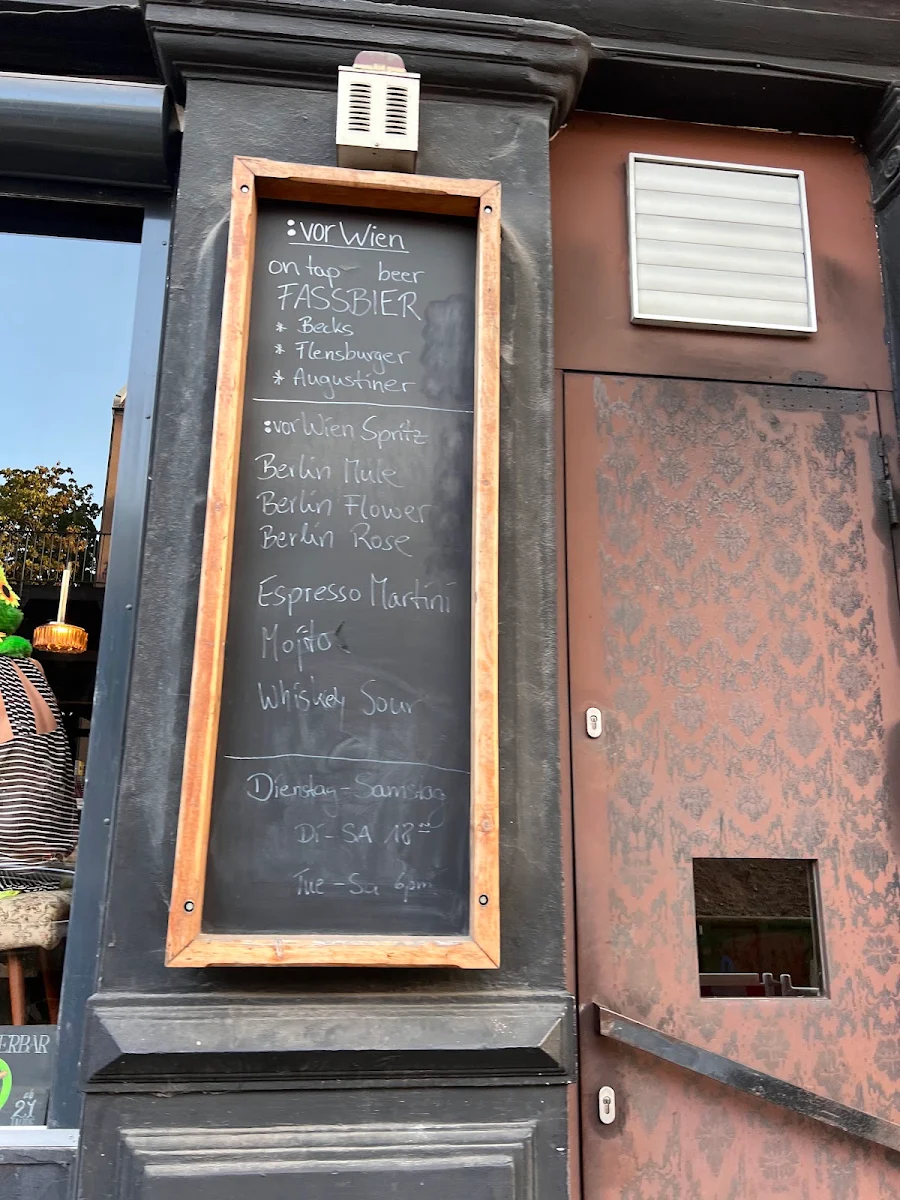 :vor Wien
on tap beer
FASSBIER
* Becks
* Flensburger
* Augustiner
:vorWien Spritz
Berlin Mule
Berlin Flower
Berlin Rose
Espresso Martini
Mojito
Whiskey Sour
Dienstag-Samstag
Di-SA 18⁰⁰
Tue-Sa 6pm
ERBAR
21